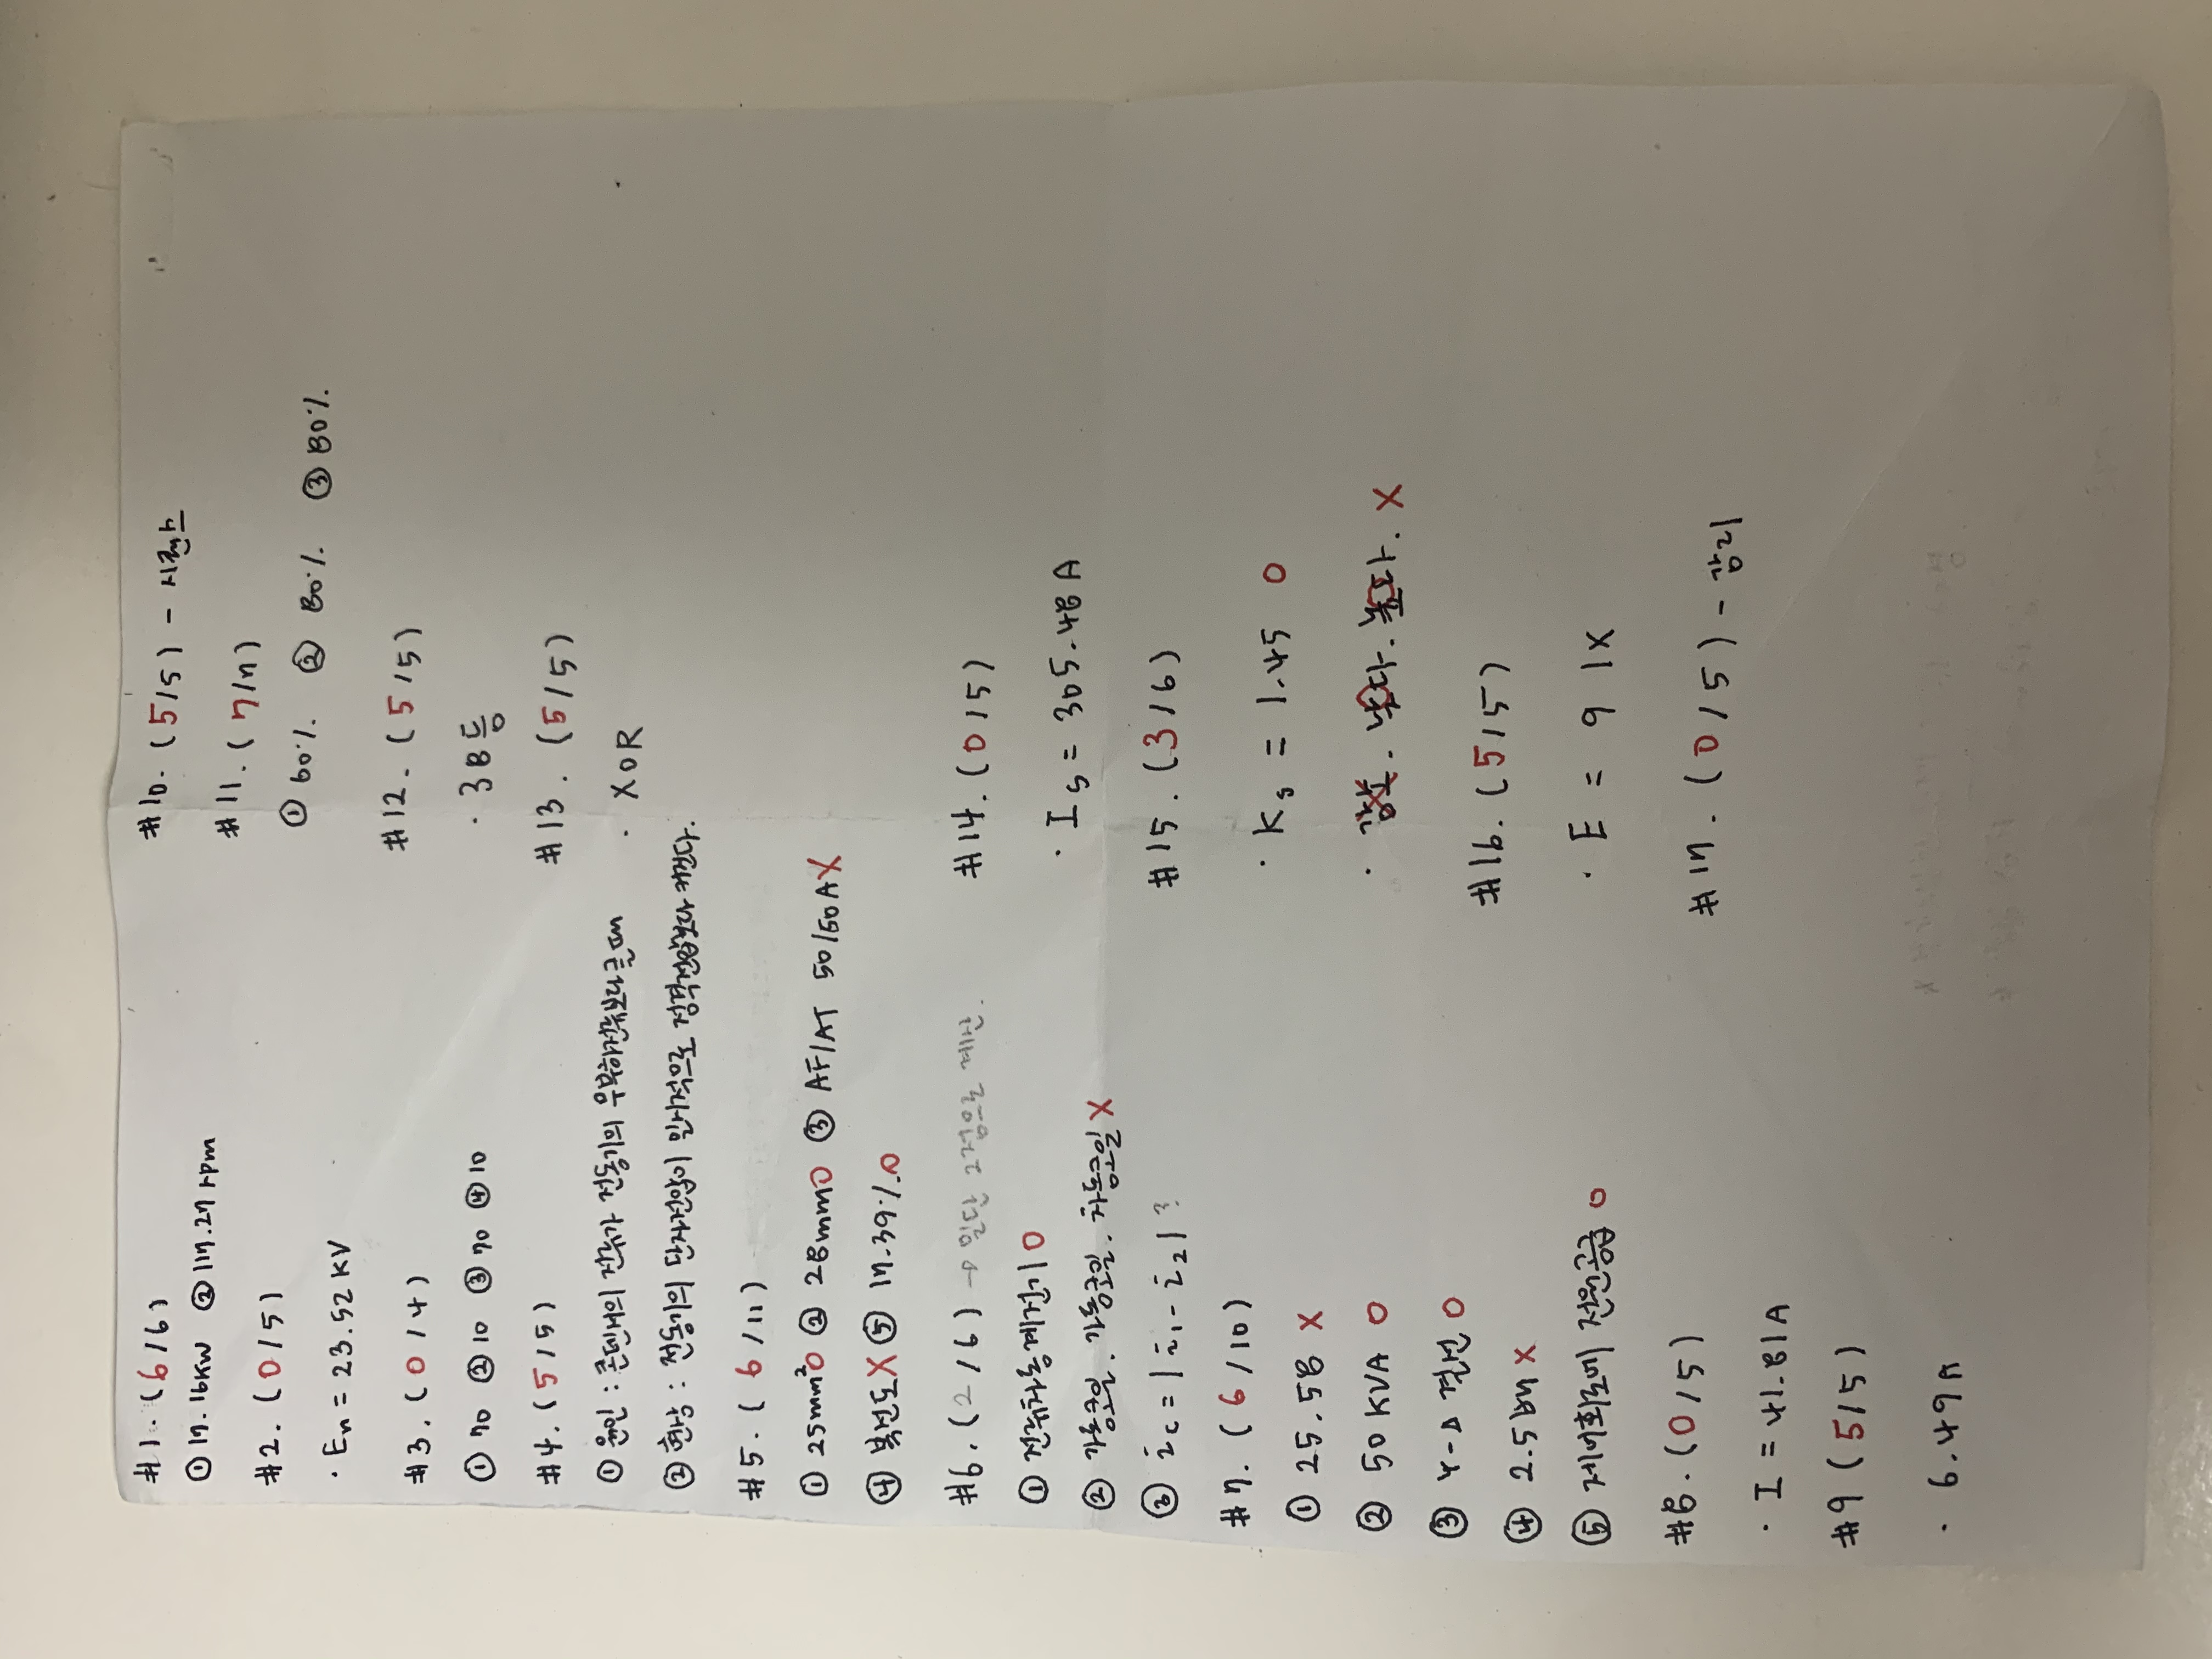 #1. (6/6)
① 17.16KW ② 117.27 rpm
#2. (0/5)
· En = 23.52 KV
#3. (0/4)
① 70 ② 10 ③ 70 ④ 10
#4. (5/5)
① 원인 : 콘덴서의 전류가 전동기의 무부하전류보다 클 때
② 현상 : 전동기의 단자전압이 일시적으로 정격전압보다
#5. (6/11)
① 25mm² O ② 28mm O ③ AF/AT 50/50A X
④ X ⑤ 17.39% O
#6. (2/6) → 일단 2점으로 계산.
① 전류차동계전기 O
② X
③ ic = | i1 - i2 | ?
#7. (6/10)
① 25.58 X
② 50 KVA O
③ Y-Δ 결선 O
④ X
⑤ 제어회로에 전원공급 O
#8. (0/5)
· I = 41.81A
#9 (5/5)
· 6.49A
#10. (5/5) - 시퀀스
#11. (7/7)
① 60% ② 80% ③ 80%
#12. (5/5)
· 38등
#13. (5/5)
· XOR
#14. (0/5)
· Is = 305.48 A
#15. (3/6)
· Ks = 1.45 O
· 낮다. 높다. X
#16. (5/5)
· E = 91X
#17. (0/5) - 감리